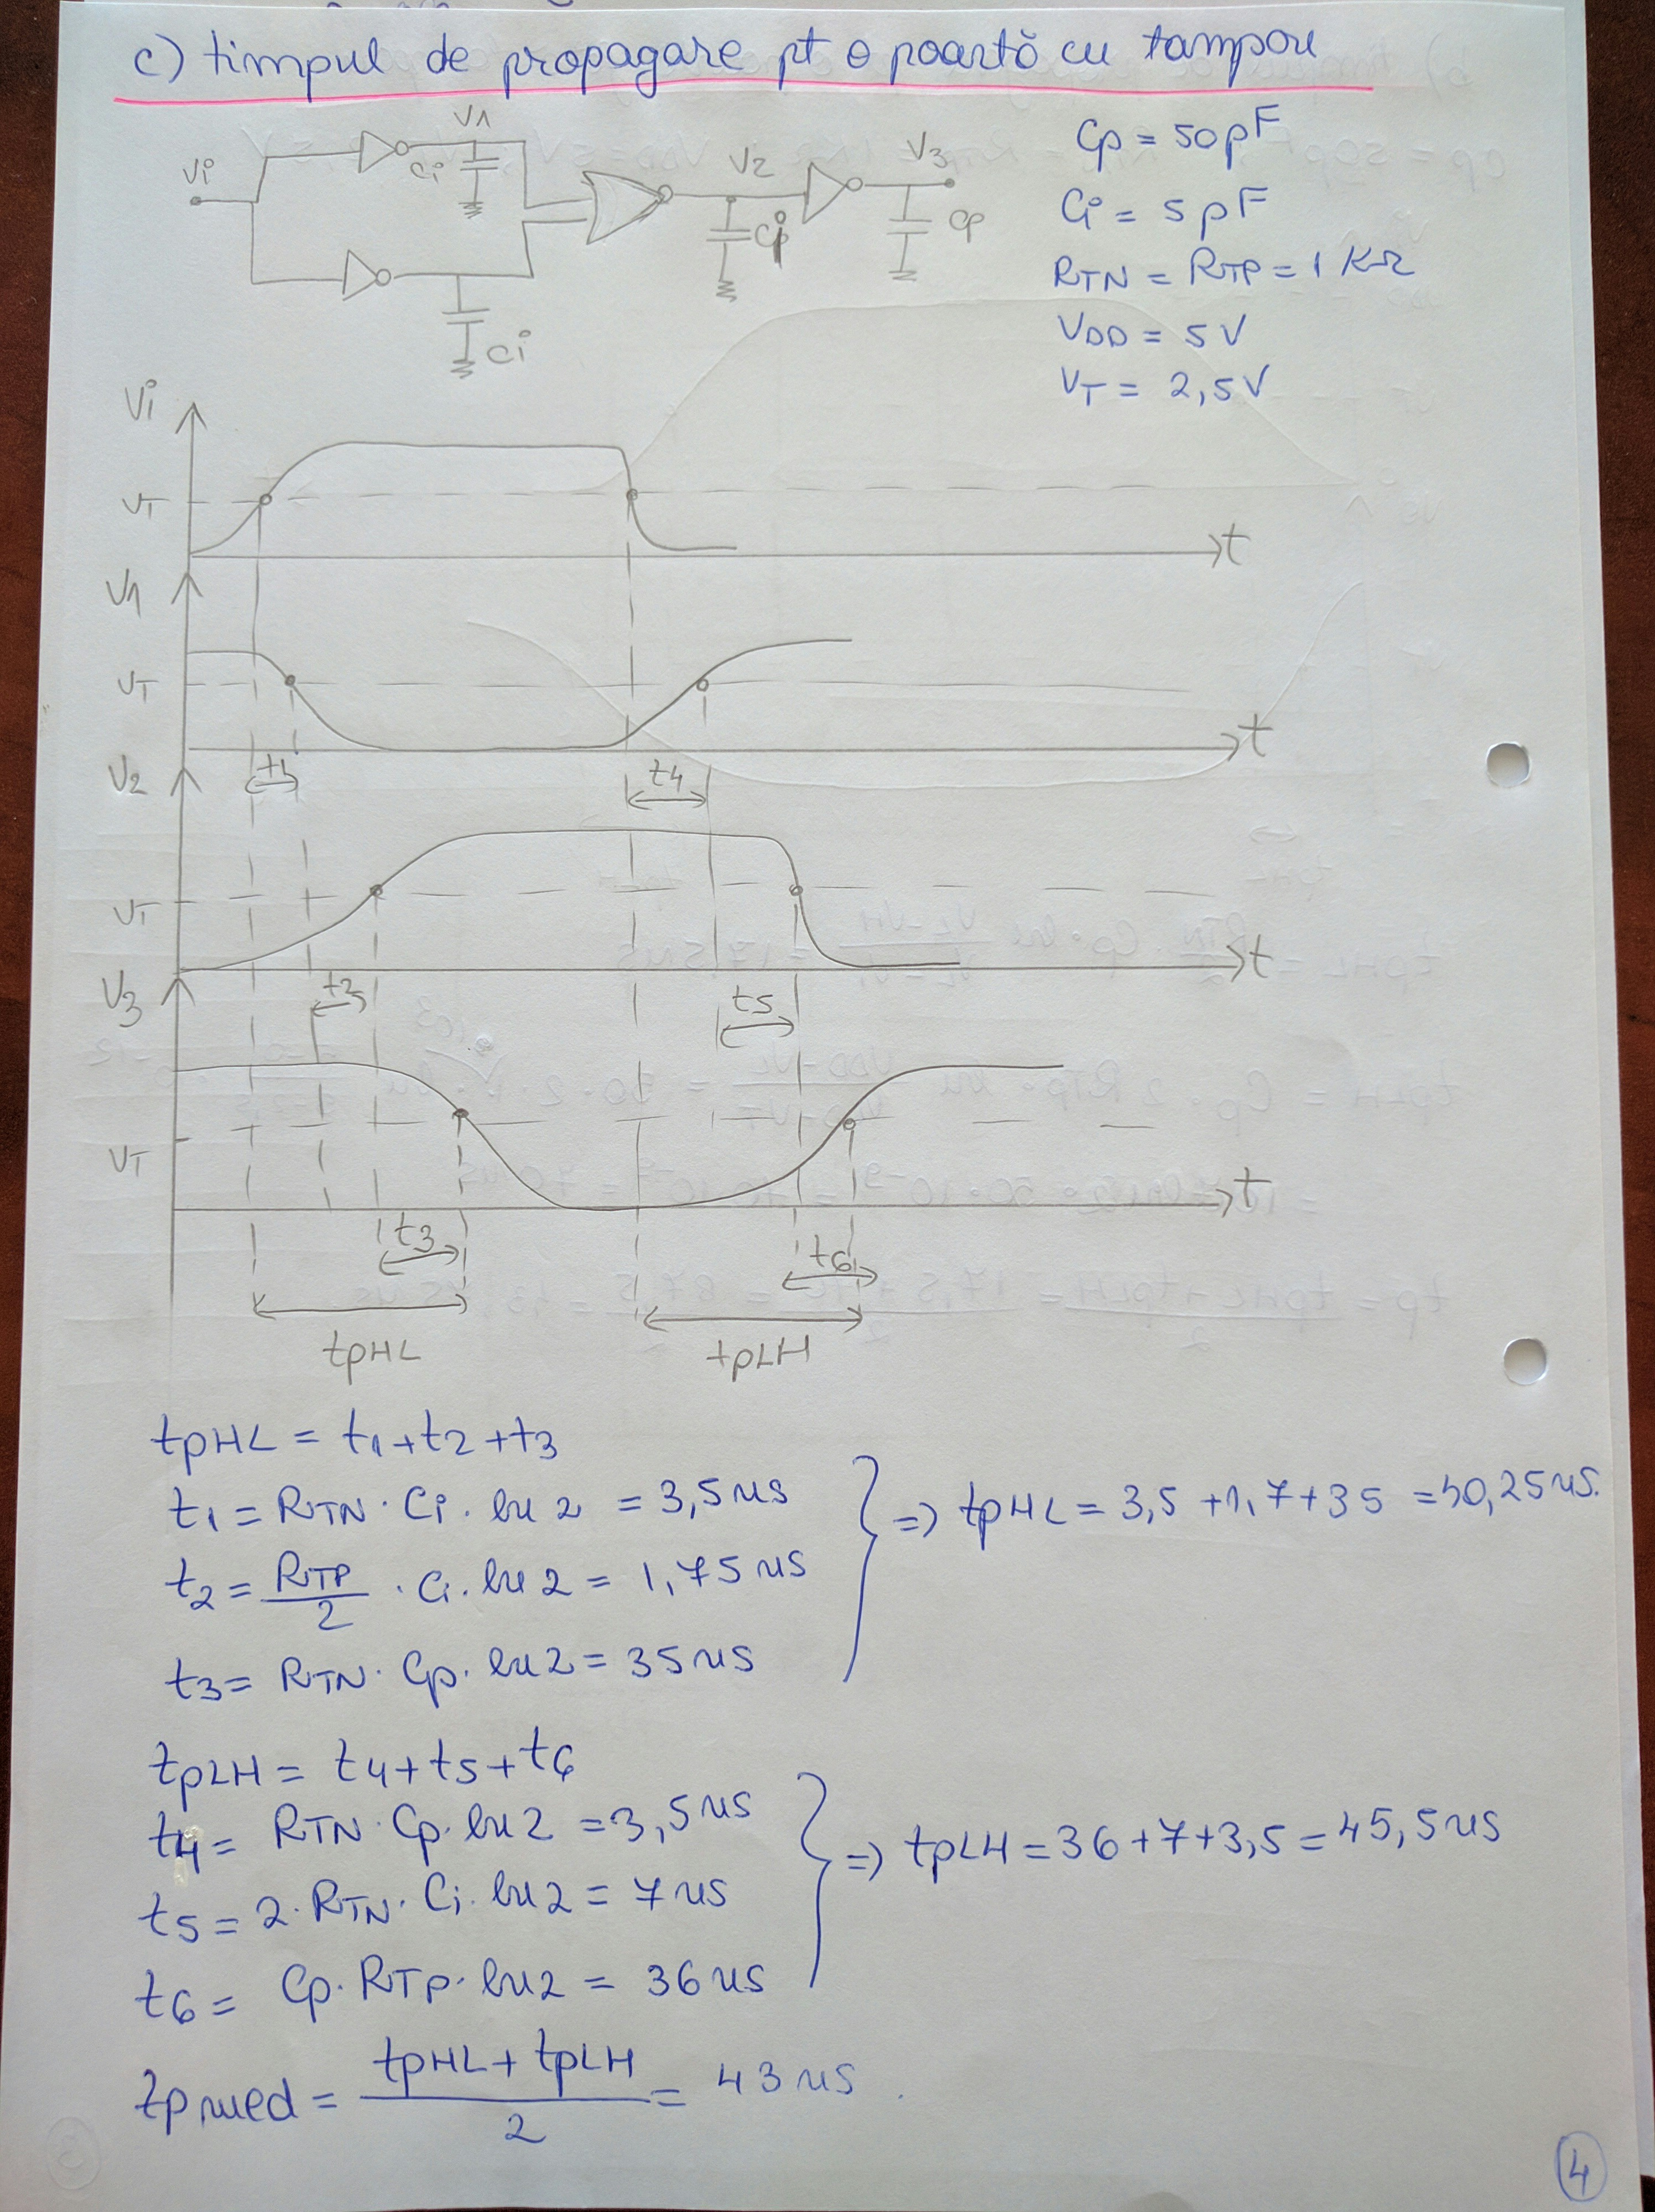 c) timpul de propagare pt o poartă cu tampon
Vi
V1
Ci
V2
Ci
V3
Cp
Ci
Cp = 50pF
Ci = 5pF
RTN = RTP = 1 KΩ
VDD = 5V
VT = 2,5V
Vi
VT
t
V1
VT
t
t1
t4
V2
VT
t
t2
t5
V3
VT
t
t3
t6
tpHL
tpLH
tpHL = t1+t2+t3
t1 = RTN · Ci · ln 2 = 3,5 ns
t2 = RTP/2 · Ci · ln 2 = 1,75 ns
t3 = RTN · Cp · ln 2 = 35 ns
=> tpHL = 3,5 + 1,7 + 35 = 40,25 ns.
tpLH = t4+t5+t6
t4 = RTN · Cp · ln 2 = 3,5 ns
t5 = 2 · RTN · Ci · ln 2 = 7 ns
t6 = Cp · RTP · ln 2 = 36 ns
=> tpLH = 36+7+3,5 = 45,5 ns
tpmed = tpHL + tpLH / 2 = 43 ns.
4